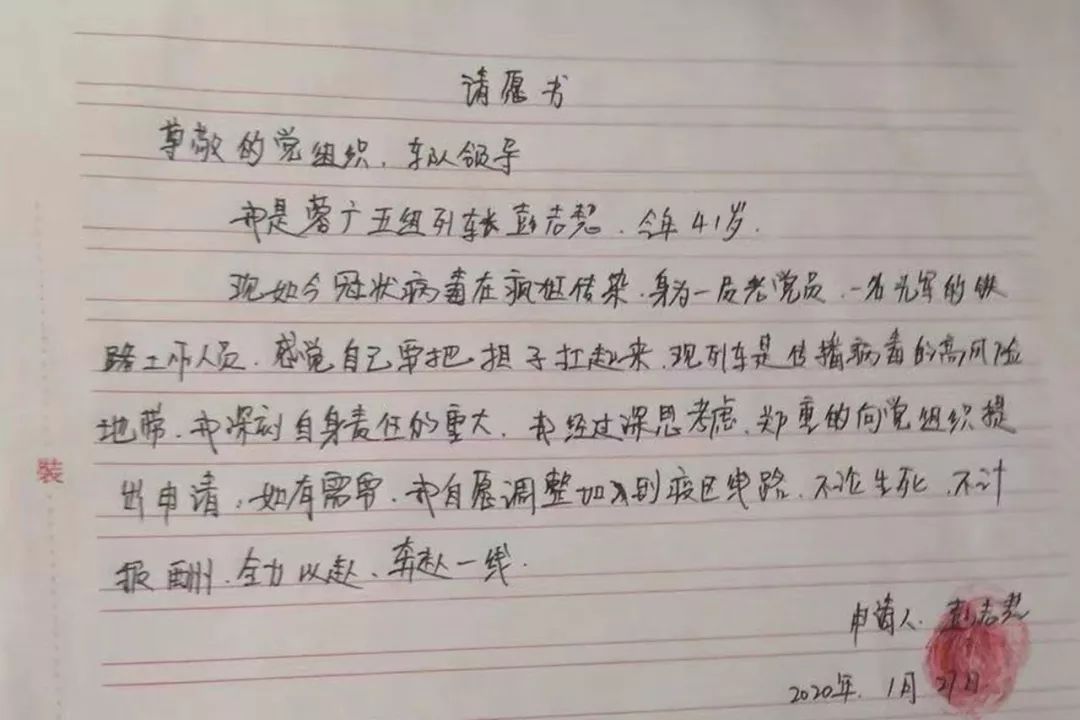 请愿书
尊敬的党组织、车队领导
我是蓉广五组列车长彭志想、今年41岁.
现如今冠状病毒在疯狂传染、身为一名老党员、一名光军的铁
路工作人员、感觉自己要把担子扛起来、现列车是传播病毒的高风险
地带、我深刻自身责任的重大、我经过深思考虑、郑重的向党组织提
出申请，如有需要、我自愿调整加入到疫区线路、不论生死、不计
报酬、全力以赴、奔赴一线.
装
申请人、彭志
2020年、1月27日.